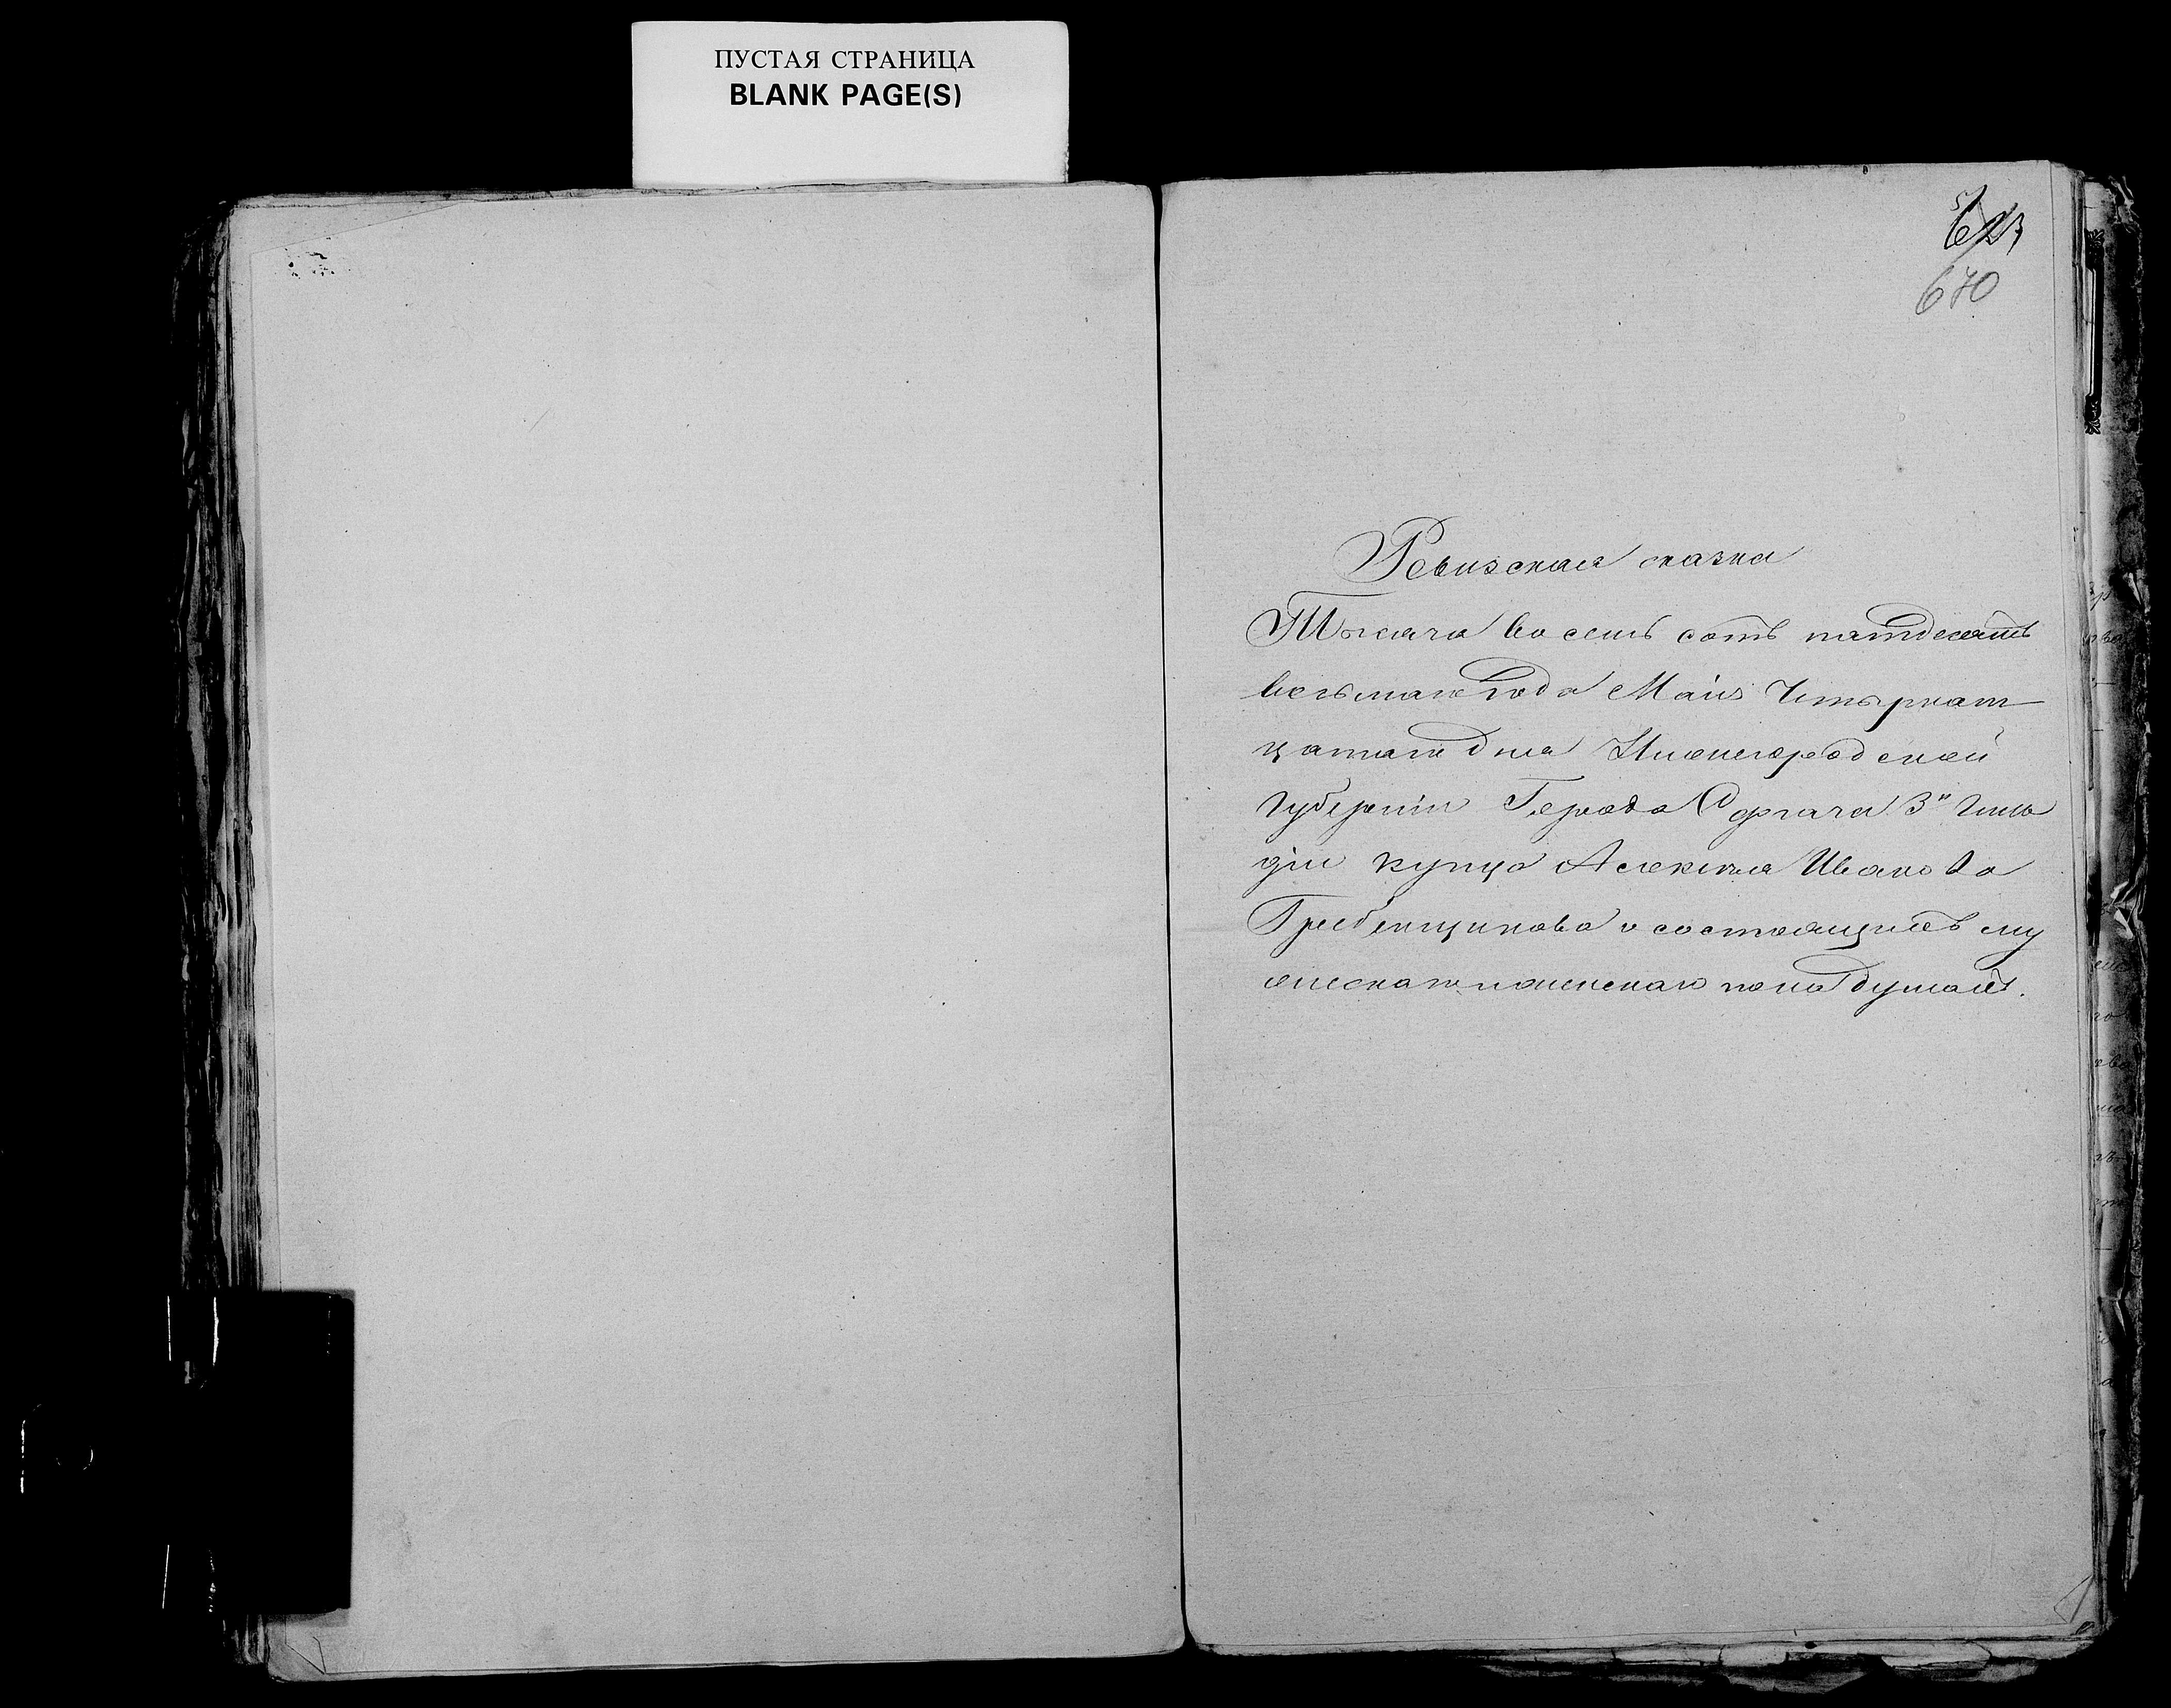 ПУСТАЯ СТРАНИЦА
BLANK PAGE(S)
623
670
Ревизская сказка
Тысяча восемь сотъ пятдесятъ
восьмаго года Маія Четырнат
цатаго дня Нижегородской
губерніи Города Сергача 3й Гиль
діи купца Алексѣя Иванова
Гребенщикова о состоящихъ му
жескаго и женскаго пола душахъ.